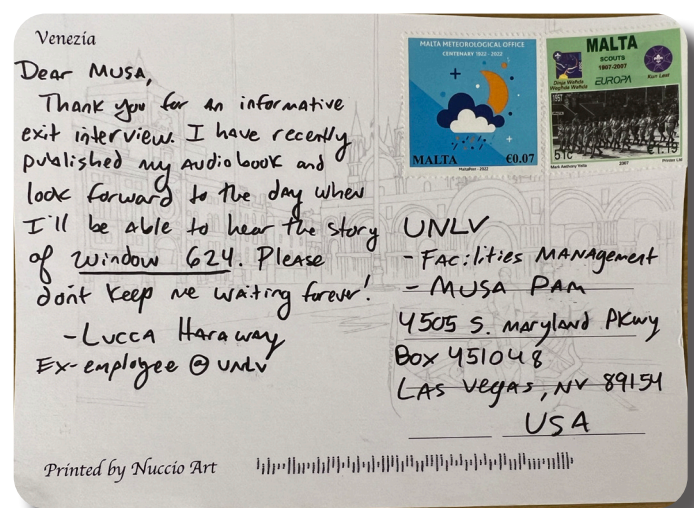 Venezia
Dear Musa,
Thank you for an informative
exit interview. I have recently
published my audiobook and
look forward to the day when
I'll be able to hear the story
of window 624. Please
don't keep me waiting forever!
-Lucca Haraway
Ex-employee @ UNLV
Printed by Nuccio Art
MALTA METEOROLOGICAL OFFICE
CENTENARY 1922 - 2022
MALTA
€0.07
MaltaPost - 2022
MALTA
SCOUTS
1907-2007
EUROPA
1957
51c
€1.19
2007
UNLV
- Facilities Management
- Musa Pam
4505 S. Maryland Pkwy
Box 451048
Las Vegas, NV 89154
USA